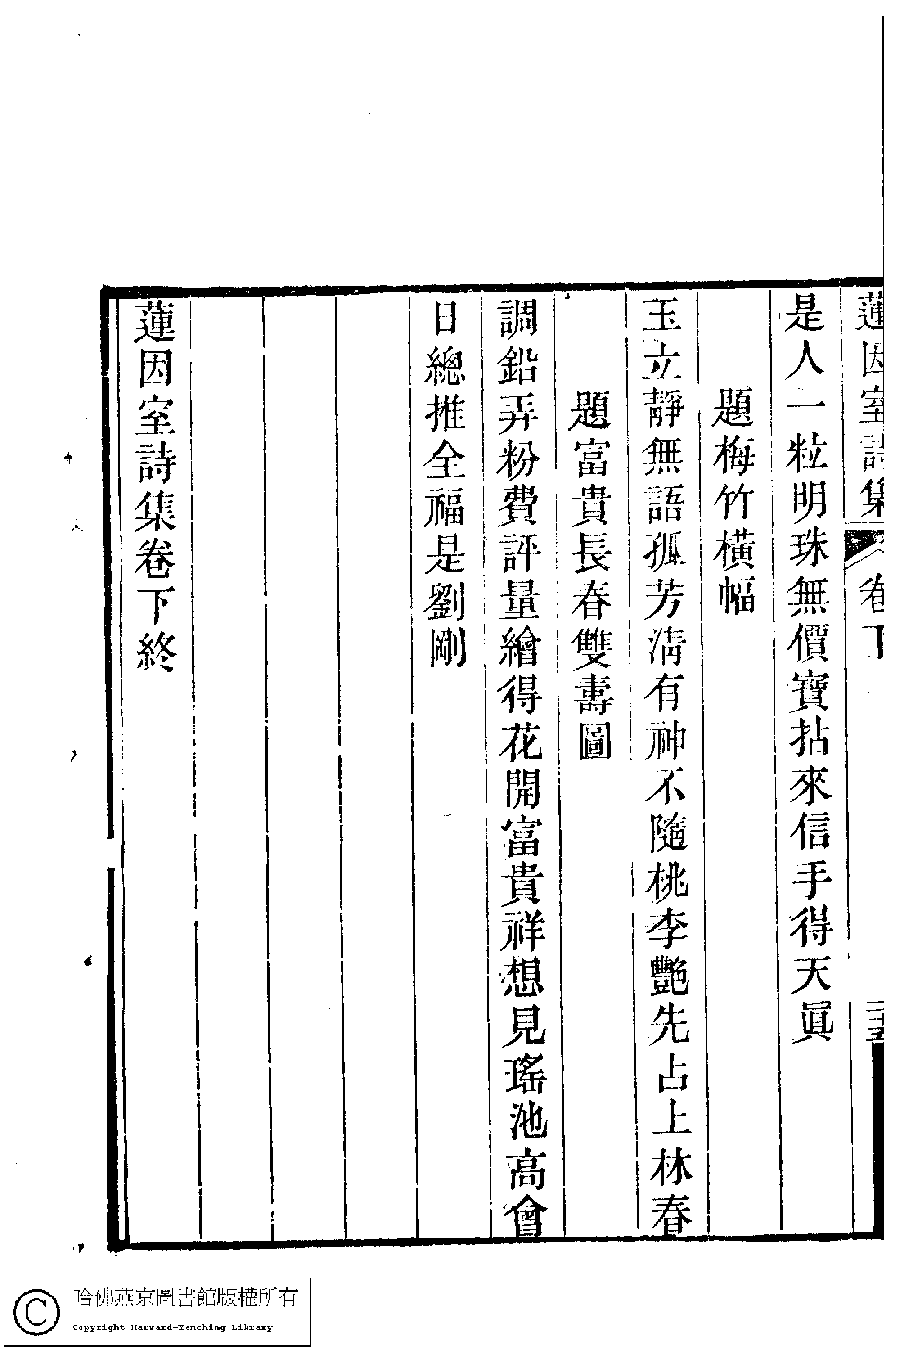 蓮因室詩集 卷下
是人一粒明珠無價寶拈來信手得天眞
題梅竹橫幅
玉立靜無語孤芳淸有神不隨桃李艷先占上林春
題富貴長春雙壽圖
調鉛弄粉費評量繪得花開富貴祥想見瑤池高會
日總推全福是劉剛
蓮因室詩集卷下終
哈佛燕京圖書館版權所有
Copyright Harvard-Yenching Library